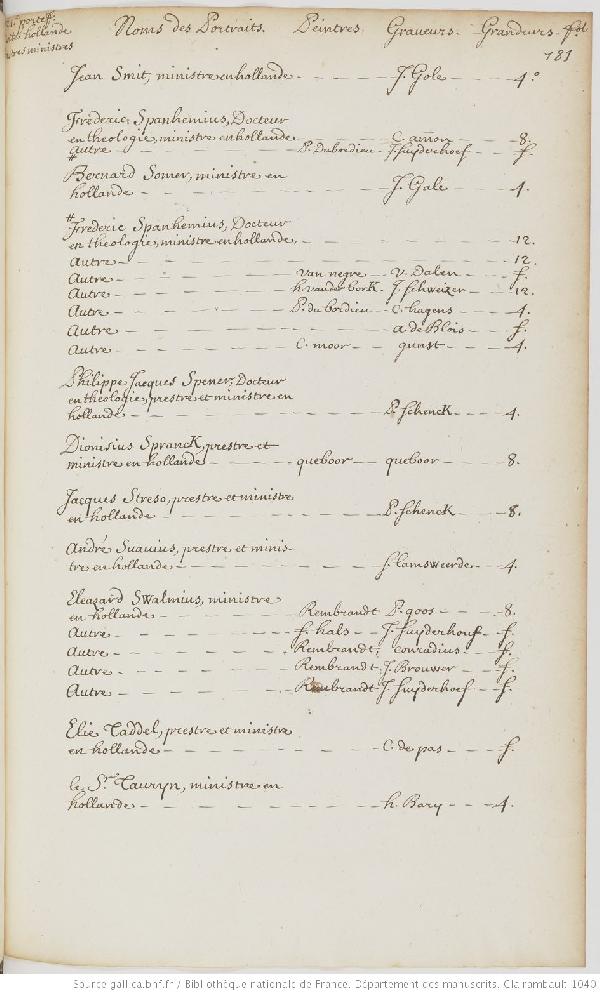 Noms des Portraits. Peintres. Graveurs. Grandeurs. fol.
hollande
ministres
181
Jean Smit, ministre en hollande J. Gole 4.º
Frederic Spanhemius, Docteur
en theologie, ministre en hollande C. amon 8.
autre P. Dubordieu J. Suyderhoef f.
#
Bernard Somer, ministre en
hollande J. Gale 4.
#
Frederic Spanhemius, Docteur
en theologie, ministre en hollande 12.
Autre 12.
Autre van negre v. Dalen f.
Autre h. vander bork J. Schweizer 12.
Autre P. du bordieu C. hagens 4.
Autre a de Blois f.
Autre C. moor gunst 4.
Philippe Jacques Spener, Docteur
en theologie, prestre et ministre en
hollande P. Schenck 4.
Dionisius Spranck, prestre et
ministre en hollande queboor queboor 8.
Jacques Streso, prestre et ministre
en hollande P. Schenck 8.
André Suavius, prestre et minis-
tre en hollande f. lamsweerde 4.
Eleazard Swalmius, ministre
en hollande Rembrandt P. goos 8.
Autre f. hals J. Suyderhouf f.
Autre Rembrandt conradius f.
Autre Rembrandt J. Brouwer f.
Autre Rembrandt J. Suyderhoef f.
Elie Taddel, prestre et ministre
en hollande C. de pas f.
le Sr. Tauryn, ministre en
hollande h. Bary 4.
Source gallica.bnf.fr / Bibliothèque nationale de France. Département des manuscrits. Clairambault 1040